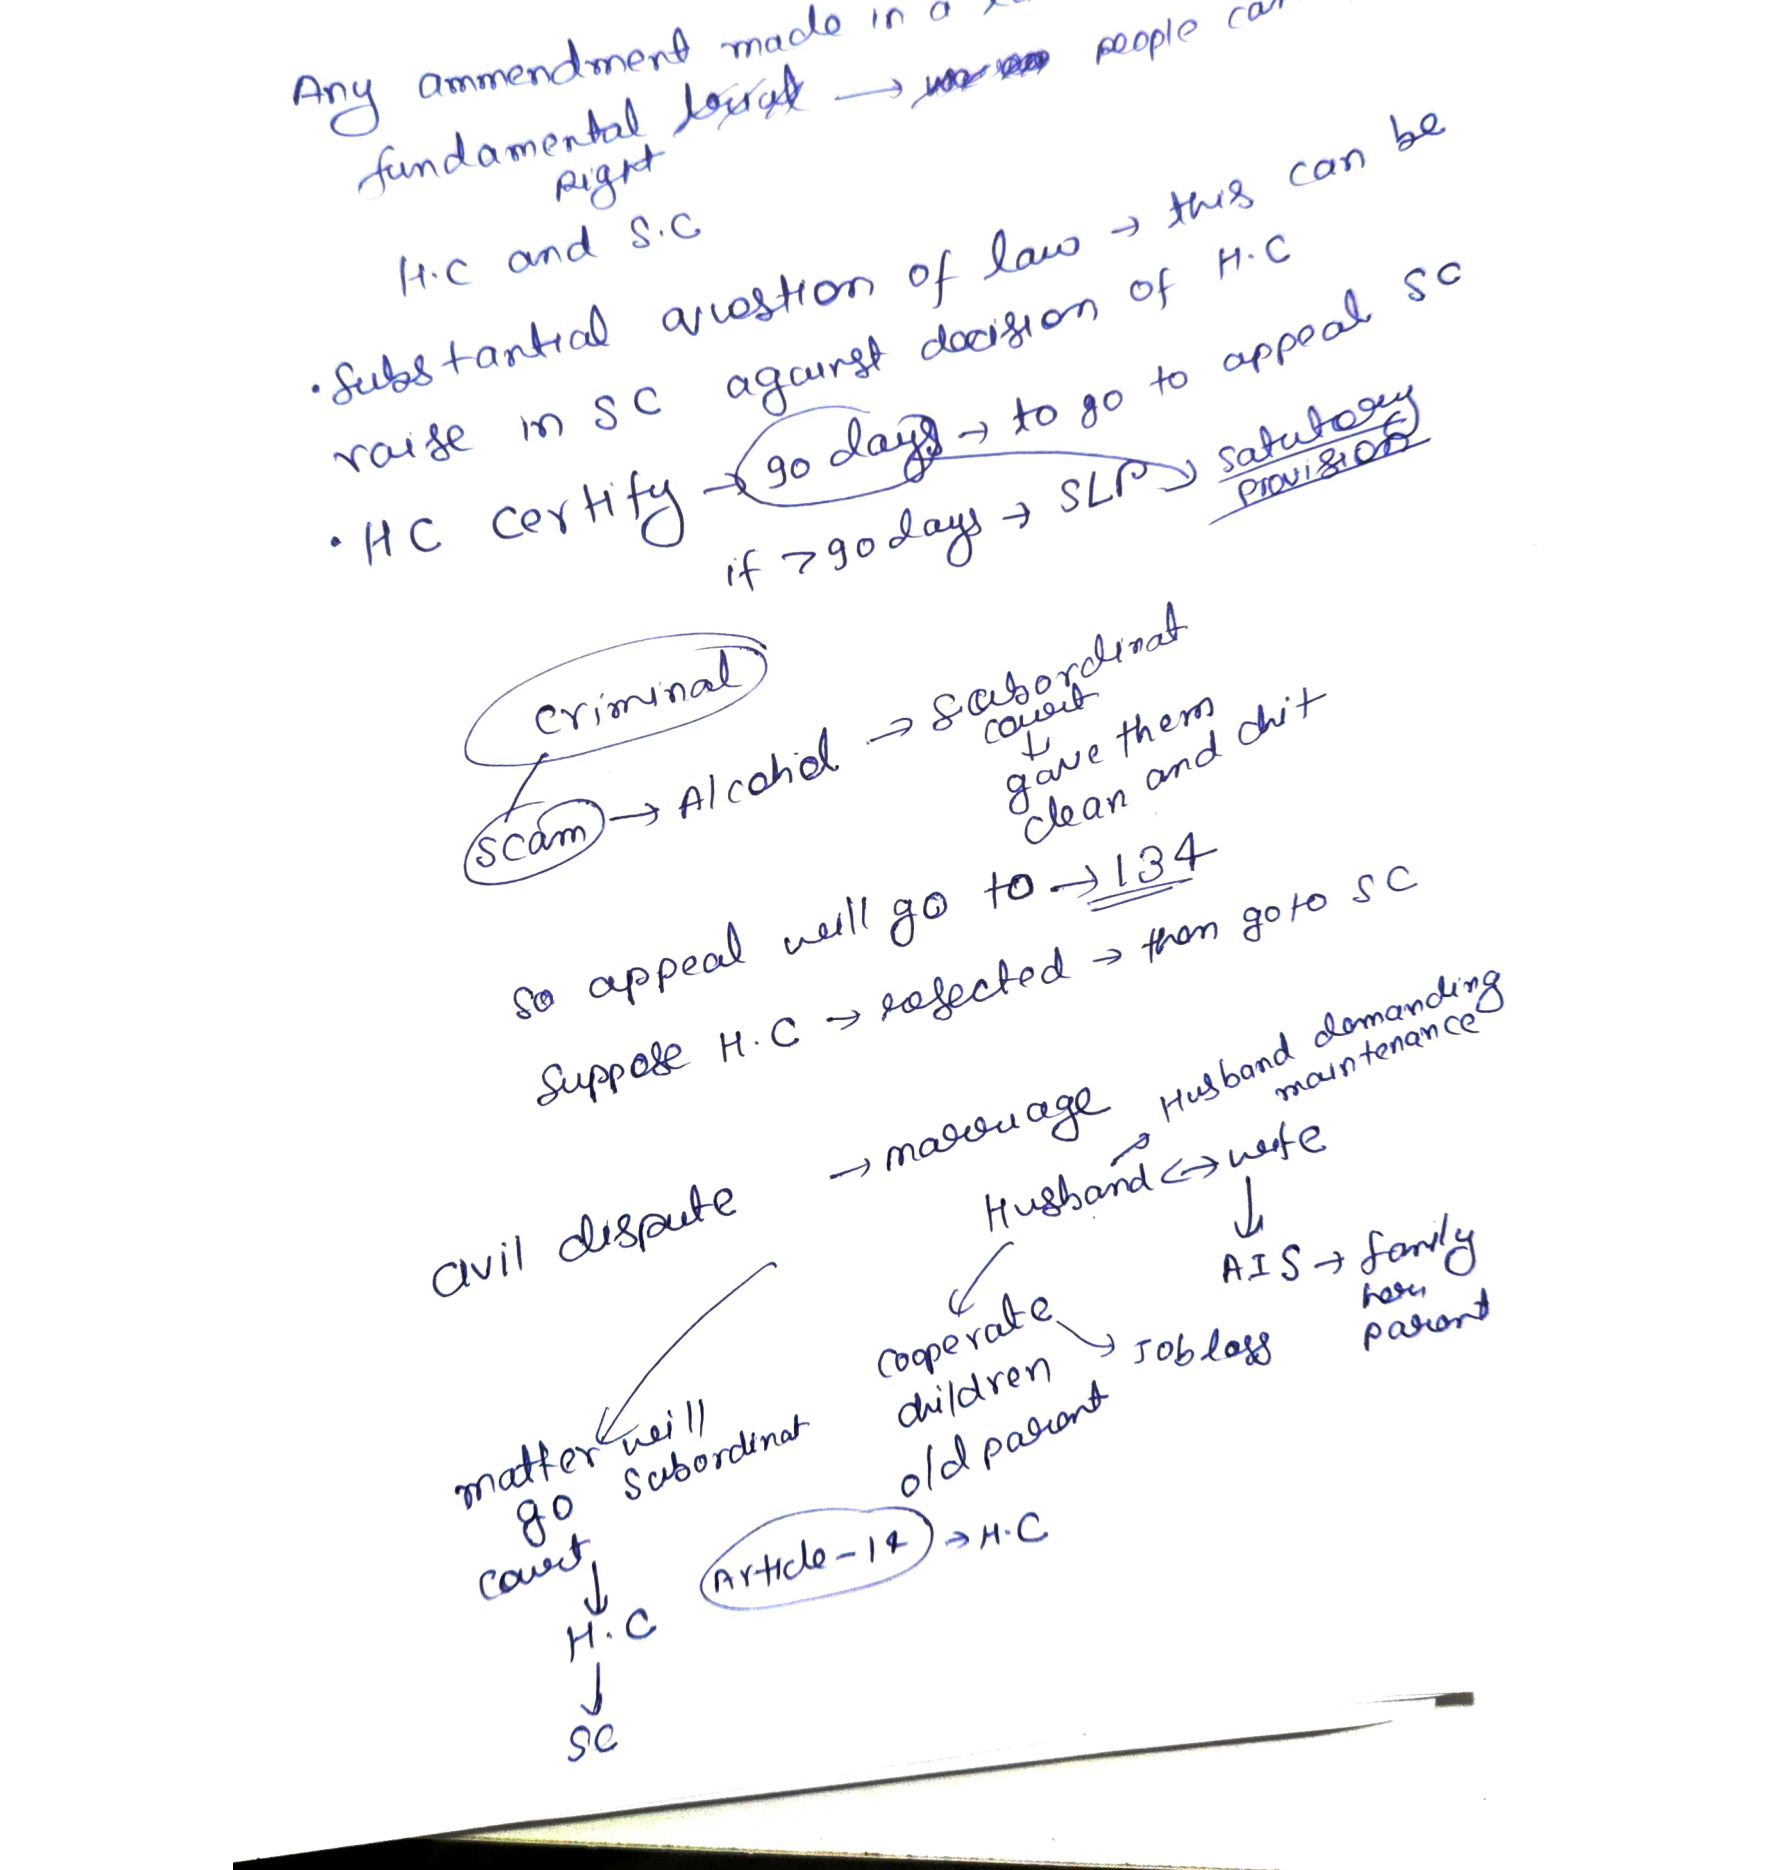 Any ammendment made in a
fundamental → people can
right
H.C and S.C
• Substantial question of law → this can be
raise in SC against decision of H.C
• HC certify → 90 days → to go to appeal SC
if >90 days → SLP → satutory
provision
criminal
scam → Alcohol → Sabordinat
court
↓
gave them
clean and chit
so appeal will go to → 134
Suppose H.C → rejected → then go to SC
civil dispute → marriage
Husband demanding
maintenance
Husband ↔ wife
AIS → family
parent
cooperate → Job loss
children
old parent
matter will
go Sabordinat
court
↓
H.C
↓
SC
Article-14 → H.C